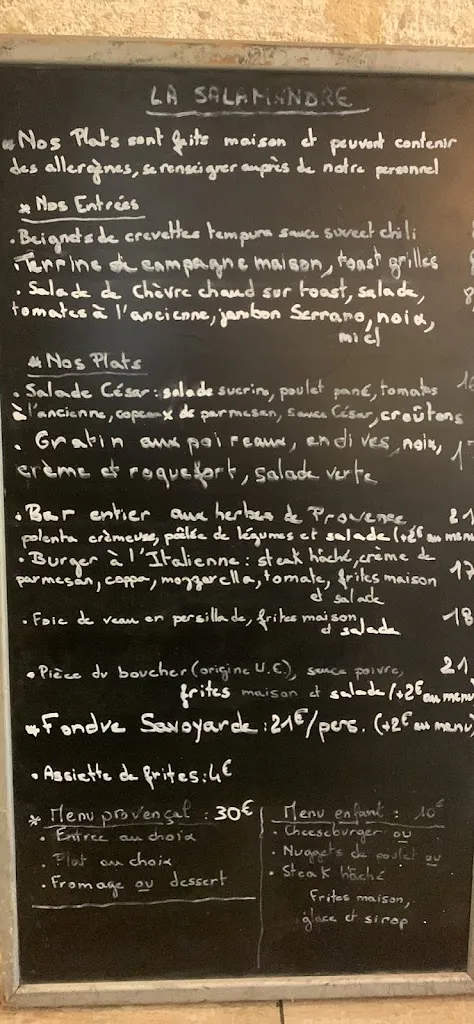 LA SALAMANDRE
* Nos Plats sont faits maison et peuvent contenir
des allergènes, se renseigner auprès de notre personnel
* Nos Entrées
. Beignets de crevettes tempura sauce sweet chili
Terrine de campagne maison, toast grillés
. Salade de Chèvre chaud sur toast, salade,
tomates à l'ancienne, jambon Serrano, noix,
miel
* Nos Plats
. Salade César: salade sucrine, poulet pané, tomates
à l'ancienne, copeaux de parmesan, sauce César, croûtons
. Gratin aux poireaux, endives, noix,
crème et roquefort, salade verte
. Bar entier aux herbes de Provence 21
polenta crèmeuse, poêlée de légumes et salade (+2€ au menu
. Burger à l'Italienne: steak hâché, crème de
parmesan, coppa, mozzarella, tomate, frites maison 17
et salade
. Foie de veau en persillade, frites maison 18
et salade
. Pièce du boucher (origine U.E.), sauce poivre, 21
frites maison et salade (+2€ au menu
* Fondue Savoyarde: 21€/pers. (+2€ au menu)
. Assiette de frites: 4€
* Menu provençal: 30€
. Entrée au choix
. Plat au choix
. Fromage ou dessert
Menu enfant: 10€
. Cheeseburger ou
. Nuggets de poulet ou
. Steak hâché
Frites maison,
glace et sirop.